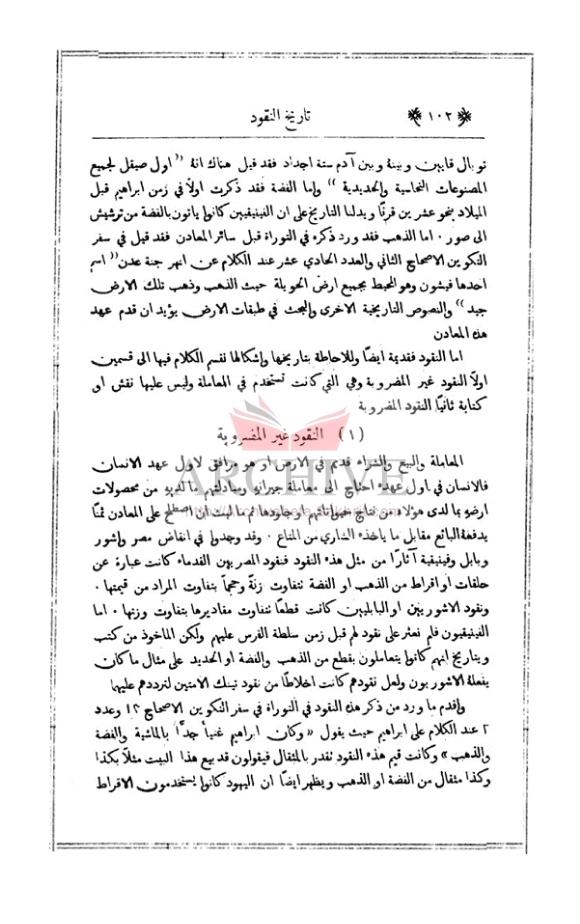 ﴿ ١٠٢ ﴾ تاريخ النقود
توبال قايين وبينهُ وبين آدم ستة اجداد فقد قيل هناك انهُ "اول صيقل لجميع
المصنوعات النحاسية والحديدية" واما الفضة فقد ذكرت اولاً في زمن ابراهيم قبل
الميلاد بنحو عشرين قرناً ويدلنا التاريخ على ان الفينيقيين كانوا ياتون بالفضة من ترشيش
الى صور ٠ اما الذهب فقد ورد ذكره في التوراة قبل سائر المعادن فقد قيل في سفر
التكوين الاصحاح الثاني والعدد الحادي عشر عند الكلام عن انهر جنة عدن "اسم
احدها فيشون وهو المحيط بجميع ارض الحويلة حيث الذهب وذهب تلك الارض
جيد" والنصوص التاريخية الاخرى والبحث في طبقات الارض يؤيد ان قدم عهد
هذه المعادن
اما النقود فقديمة ايضاً وللاحاطة بتاريخها واشكالها نقسم الكلام فيها الى قسمين
اولاً النقود غير المضروبة وهي التي كانت تستخدم في المعاملة وليس عليها نقش او
كتابة ثانياً النقود المضروبة
(١) النقود غير المضروبة
المعاملة والبيع والشراء قديم في الارض او هو مرافق لاول عهد الانسان
فالانسان في اول عهده احتاج الى معاملة جيرانهِ ومبادلتهم ما لديهِ من محصولات
ارضهِ بما لدى هؤلاء من نتاج حيواناتهم وجلودها ثم ما لبث ان اصطلح على المعادن ثمناً
يدفعهُ البائع مقابل ما ياخذه الشاري من المتاع ٠ وقد وجدوا في انقاض مصر واشور
وبابل وفينيقية آثاراً من مثل هذه النقود فنقود المصريين القدماء كانت عبارة عن
حلقات او اقراط من الذهب او الفضة تتفاوت زنةً وحجماً بتفاوت المراد من قيمتها ٠
ونقود الاشوريين او البابليين كانت قطعاً تتفاوت مقاديرها بتفاوت وزنها ٠ اما
الفينيقيون فلم نعثر على نقود لهم قبل زمن سلطة الفرس عليهم ولكن الماخوذ من كتب
وبتاريخ انهم كانوا يتعاملون بقطع من الذهب والفضة او الحديد على مثال ما كان
يفعلهُ الاشوريون ولعل نقودهم كانت اخلاطاً من نقود تينك الامتين لترددهم عليهما
واقدم ما ورد من ذكر هذه النقود في التوراة في سفر التكوين الاصحاح ١٣ وعدد
٢ عند الكلام على ابراهيم حيث يقول «وكان ابراهيم غنياً جداً بالماشية والفضة
والذهب» وكانت قيم هذه النقود تقدر بالمثقال فيقولون قد بيع هذا البيت مثلاً بكذا
وكذا مثقال من الفضة او الذهب ويظهر ايضاً ان اليهود كانوا يستخدمون الاقراط
ARCHIVE